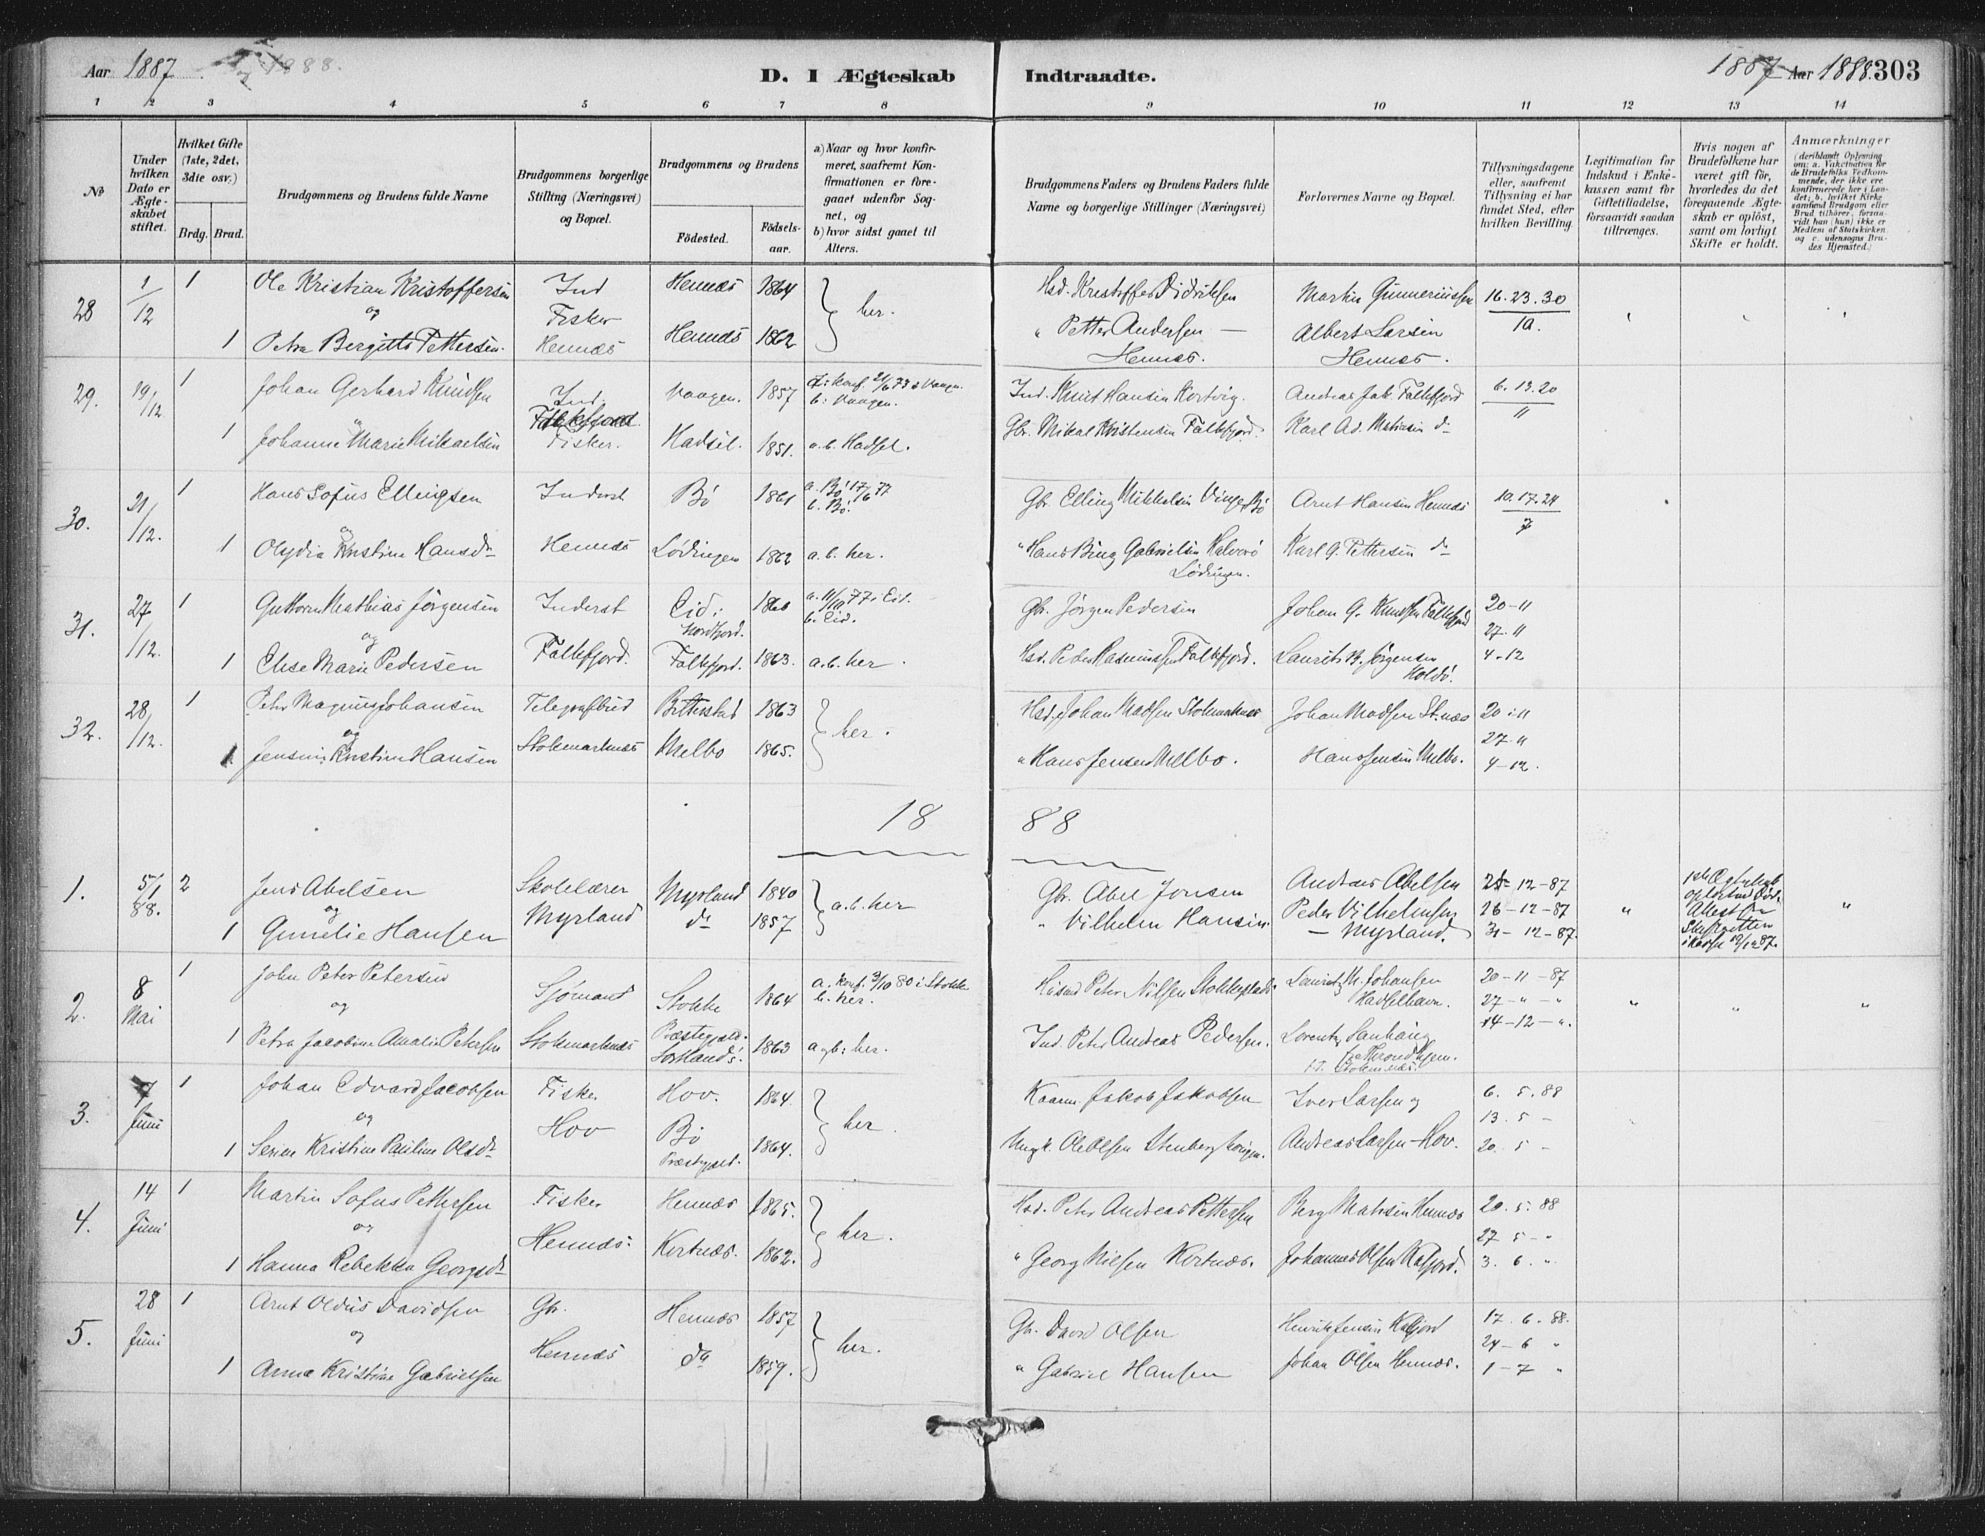 Aar 1887 og 1888.
D. I Ægteskab Indtraadte.
1887 Aar 1888. 303
1 2 3 4 5 6 7 8 9 10 11 12 13 14
No
Under hvilken Dato er Ægteskabet stiftet.
Hvilket Gifte (1ste, 2det, 3die osv.)
Brdg. Brud.
Brudgommens og Brudens fulde Navne
Brudgommens borgerlige Stilling (Næringsvei) og Bopæl.
Brudgommens og Brudens
Fødested. Fødselsaar.
a) Naar og hvor konfirmeret, saafremt Konfirmationen er foregaaet udenfor Sognet, og
b) hvor sidst gaaet til Alters.
Brudgommens Faders og Brudens Faders fulde Navne og borgerlige Stillinger (Næringsvei)
Forlovernes Navne og Bopæl.
Tillysningsdagene eller, saafremt Tillysning ei har fundet Sted, efter hvilken Bevilling.
Legitimation for Indskud i Enkekassen samt for Giftetilladelse, forsaavidt saadan tiltrænges.
Hvis nogen af Brudefolkene har været gift før, hvorledes da det foregaaende Ægteskab er opløst, samt om lovligt Skifte er holdt.
Anmærkninger
(deriblandt Oplysning om: a. Vakcination for de Brudefolks Vedkommende, der ikke ere konfirmerede her i Landet; b. hvilket Kirkesamfund Brudgom eller Brud tilhører, forsaavidt han (hun) ikke er Medlem af Statskirken og c. udensogns Brudes Hjemsted.)
28 1/12 1 Ole Kristian Kristoffersen Ind Hennes 1864 her. Hsd. Kristoffer Didriksen Martin Gunneriussen 16. 23. 30
og Fisker 10.
1 Petra Bergitte Pettersen. Hennæs Hennæs 1862 " Petter Andersen — Albert Larsen
Hennæs. Hennæs.
29. 19/12 1 Johan Gerhard Knudsen Ind. Vaagen. 1857 b. Vaagen. Ind. Knut Hansen Andreas Jak. Falkfjord 6. 13. 20
11
1 Johanne Marie Mikaelsen Fisker. Hadsel. 1851. a.b. Hadsel. Gbr. Mikal Kristensen Falkfjord. Karl Ad. do
30. 21/12. 1 Hans Sofus Ellingsen Inderst Bø 1861 b. Bø. Gbr. Elling Mikkelsen Arnt Hansen Hennæs 10. 17. 24
og 7
1 Olydia Kristine Hansdr Hennæs Lødingen 1862 a.b. her. " Hans Bing Gabrielsen Karl G. Pettersen do
Lødingen.
31. 27/12. 1 Guttorm Mathias Jørgensen Inderst Eid i Nordfjord. a. 11/10 77 i Eid. b. Eid. Gbr. Jørgen Pedersen Johan G. Knudsen Falkfjord 20-11
og 27-11
1 Elise Marie Pedersen Falkfjord. Falkfjord. 1863. a.b. her. Hsd. Peder Rasmussen Falkfjord. Laurits B. Jørgensen Holdø. 4-12
32. 28/12. 1 Peter Magnus Johansen Telegrafbud Bitterstad 1863 her. Hsd. Johan Madsen Stokmarknæs Johan Madsen St.næs 20-11
og 27-11
1. Jensine Kristine Hansen Stokmarknæs Melbo 1865. " Hans Jensen Melbo. Hans Jensen Melbo. 4-12.
18 88
1. 5/1 88. 2 Jens Abelsen Skolelærer Myrland 1840 a.b. her Gbr. Abel Jensen Andreas Abelsen 25-12-87
og Myrland Peder Vilhelmsen 26-12-87 " "
1 Gunelie Hansen do 1857 " Vilhelm Hansen. — Myrland. 31-12-87.
2. 8 Mai 1 John Peter Petersen Sjømand Stokke 1864 a. konf. 3/10 80 i Stokke b. her. Husmd Peter Nilsen Laurits M. Johansen Hadselhavn. 20-11-87
og 27-"-" " " "
1 Petra Jacobine Amalie Petersen Stokmarknæs Præstegjeld. Sortlands. 1863 a og b: her. Ind. Peter Andreas Pedersen. Lorentz 14-12-".
3. 7 Juni 1 Johan Edvard Jacobsen Fisker Hov. 1864. her. Kaarm. Jakob Jakobsen Iver Larsen og 6. 5. 88
og 13. 5 -
1 Serine Kristine Pauline Olsdr Hov Bø Præstegjeld. 1864. Ole Olsen Andreas Larsen - Hov. 20. 5 -
4. 14 Juni 1 Martin Sofus Pettersen Fisker Hennæs 1865. her. Hsd. Peter Andreas Pettersen Berg Hennæs 20. 5. 88
og 27 5 - "
1 Hanna Rebekka Georgsdr Hennæs. Kortnæs. 1862. " Georg Nielsen Kortnæs. Johannes Olsen Kalfjord. 3. 6. "
5. 28 Juni 1 Arnt Oldus Davidsen Gbr. Hennæs 1857 her. Gbr. David Olsen Henrik Jensen Kalfjord 17. 6. 88.
og 24-6 "
1 Anna Kristine Gabrielsen Hennæs do 1859. " Gabriel Hansen Johan Olsen Hennæs. 1-7 "